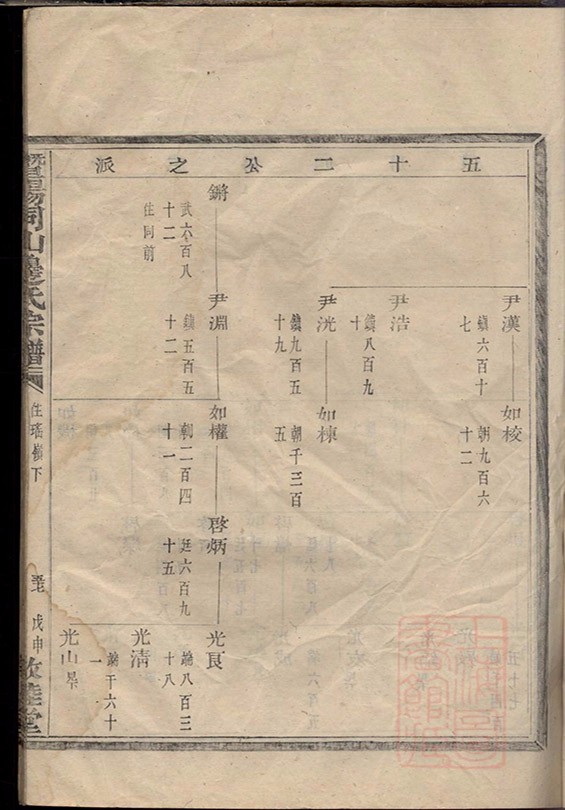 五十二公之派
尹漢 鐀六百十七
如校 朝九百六十二
尹浩 鐀八百九十
尹洸 鐀九百五十九
如棟 朝千三百五
鏘 武六百八十二 住同前
尹淵 鐀五百五十二
如權 朝二百四十一
啓炳 廷六百九十五
光艮 端八百三十八
光清 端千六十一
光山 早
暨陽同山邊氏宗譜
住瑤嶺下
戊申
敦睦堂